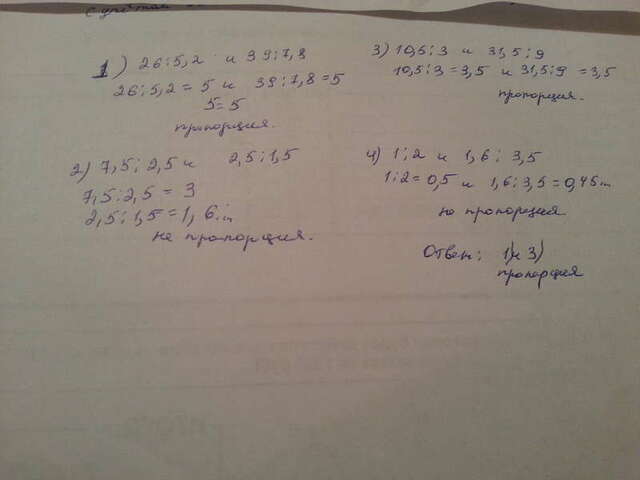 1) 26:5,2 и 39:7,8
26:5,2 = 5 и 39:7,8 = 5
5 = 5
пропорция.
2) 7,5:2,5 и 2,5:1,5
7,5:2,5 = 3
2,5:1,5 = 1,6
не пропорция.
3) 10,6:3 и 31,5:9
10,5:3 = 3,5 и 31,5:9 = 3,5
пропорция.
4) 1:2 и 1,6:3,5
1:2 = 0,5 и 1,6:3,5 = 0,45
не пропорция
Ответ: 1) и 3)
пропорция